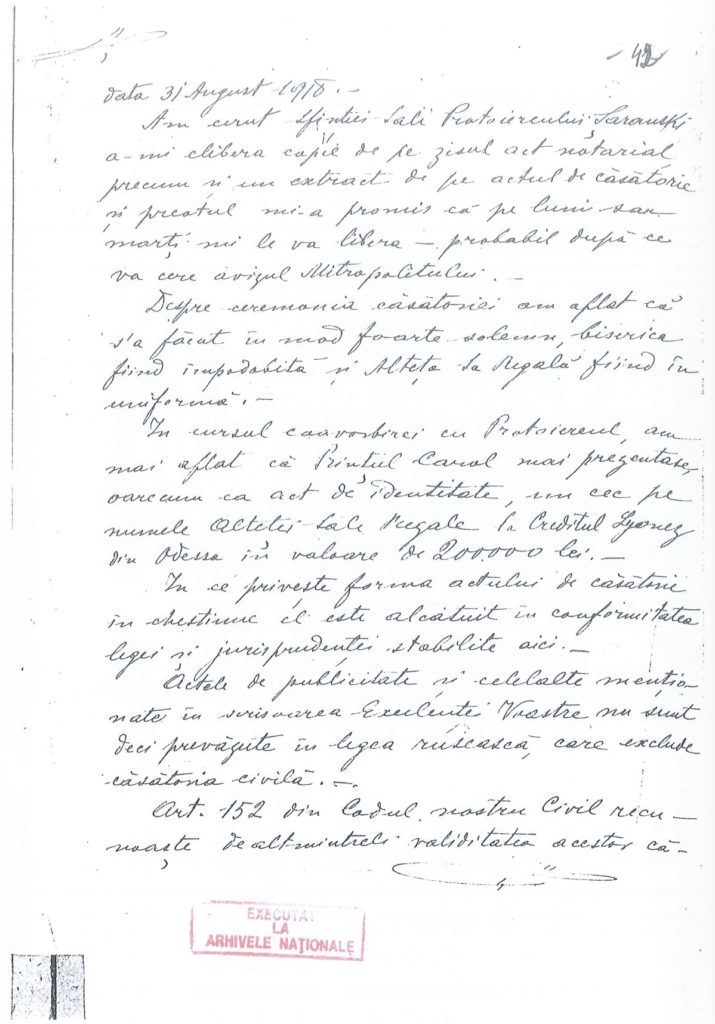 - 42
data 31 August 1918. -
Am cerut Sfinției Sale Protoiereului Saranski
a-mi elibera copie de pe zisul act notarial
precum și un extract de pe actul de căsătorie
și preotul mi-a promis că pe luni sau
marți mi le va libera - probabil după ce
va cere avizul Mitropolitului. -
Despre ceremonia căsătoriei am aflat că
s'a făcut în mod foarte solemn, biserica
fiind împodobită și Alteța Sa Regală fiind în
uniformă. -
In cursul convorbirei cu Protoiereul, am
mai aflat că Prințul Carol mai prezentase,
oarecum ca act de identitate, un cec pe
numele Altetei Sale Regale la Creditul Lyonez
din Odessa în valoare de 200.000 lei. -
In ce privește forma actului de căsătorie
în chestiune el este alcătuit în conformitatea
legei și jurisprudenței stabilite aici. -
Actele de publicitate și celelalte mențio-
nate în scrisoarea Excelenței Voastre nu sunt
deci prevăzute în legea rusească, care exclude
căsătoria civilă. -
Art. 152 din Codul nostru Civil recu-
noaște dealtmintreli validitatea acestor că-
EXECUTAT
LA
ARHIVELE NAȚIONALE